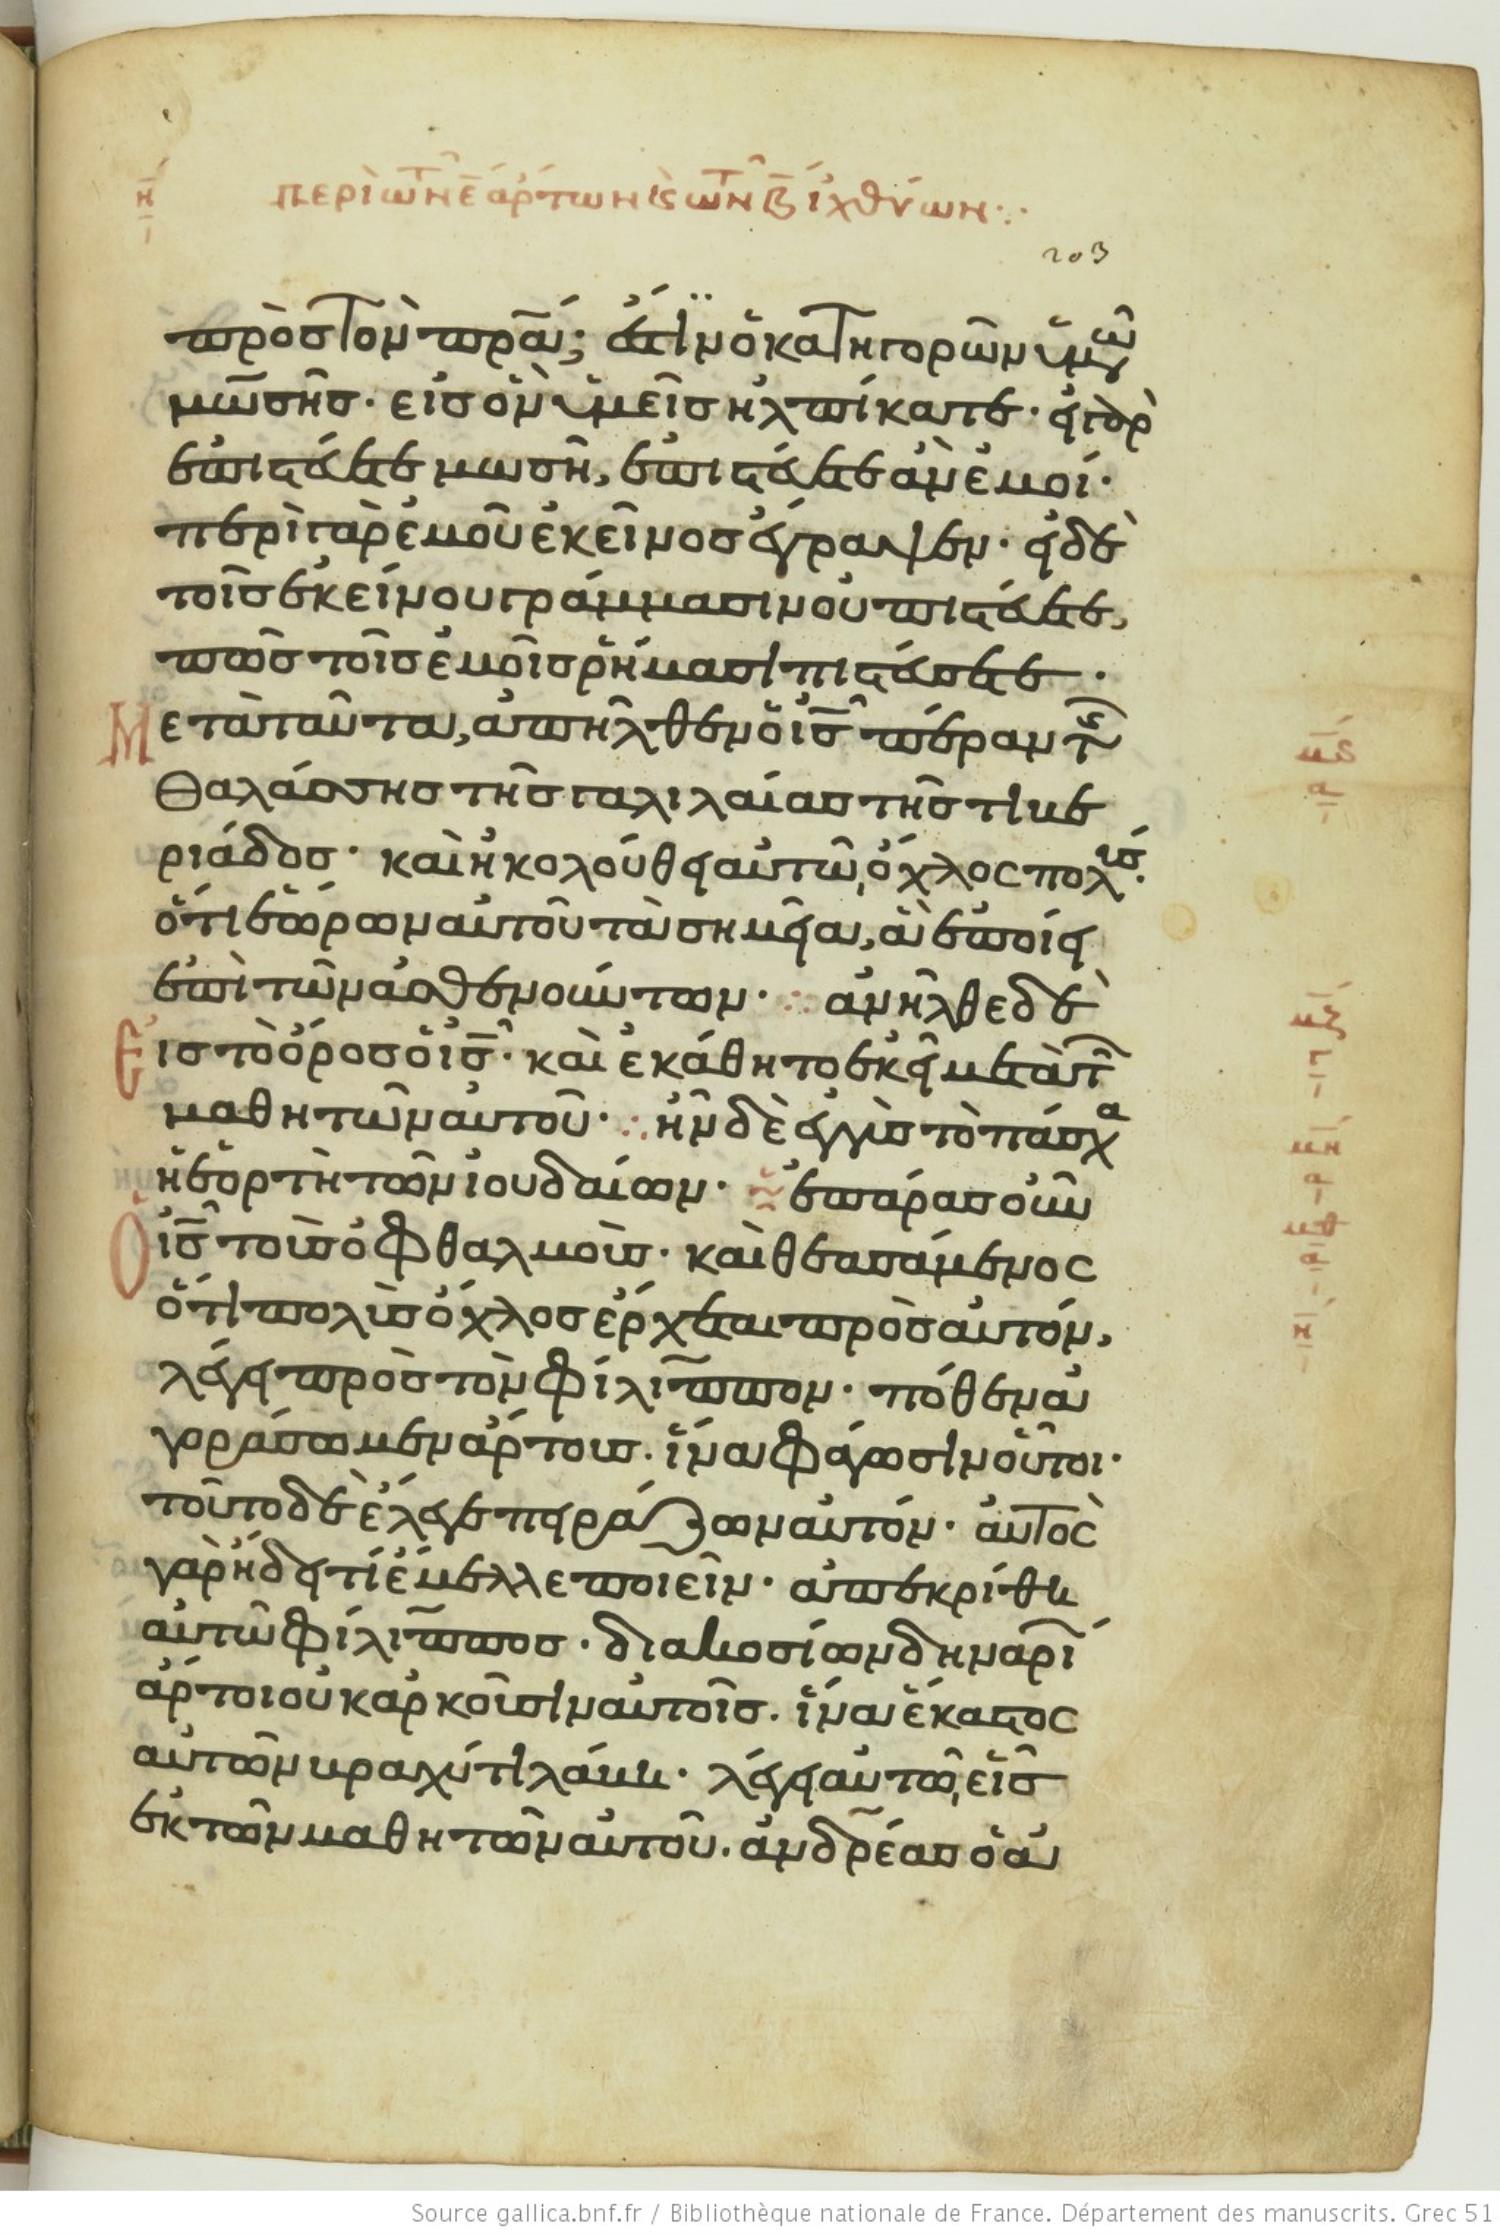 η
περὶ τῶν ε ἄρτων κ τῶν β ἰχθύων
203
πρὸς τὸν πρα· ἔστιν ὁ κατηγορῶν ὑμῶν
μωσῆς· εἰς ὃν ὑμεῖς ἠλπίκατε· εἰ γὰρ
ἐπιστεύετε μωσῆ, ἐπιστεύετε ἂν ἐμοί·
περὶ γὰρ ἐμοῦ ἐκεῖνος ἔγραψεν· εἰ δὲ
τοῖς ἐκείνου γράμμασιν οὐ πιστεύετε,
πῶς τοῖς ἐμοῖς ῥήμασι πιστεύσετε·
Μετὰ ταῦτα, ἀπῆλθεν ὁ ισ πέραν τῆς
θαλάσσης τῆς γαλιλαίας τῆς τιβε
ριάδος· καὶ ἠκολούθει αὐτῶ, ὄχλος πολύς·
ὅτι ἑώρων αὐτοῦ τὰ σημεῖα, ἃ ἐποίει
ἐπὶ τῶν ἀσθενούντων· ἀνῆλθε δὲ
Εἰς τὸ ὄρος ὁ ισ· καὶ ἐκάθητο ἐκεῖ μετὰ τῶν
μαθητῶν αὐτοῦ· ἦν δὲ ἐγγὺς τὸ πάσχα
ἡ ἑορτὴ τῶν ἰουδαίων· ἐπάρας οὖν
Ὁ ισ τοὺς ὀφθαλμοὺς· καὶ θεασάμενος
ὅτι πολὺς ὄχλος ἔρχεται πρὸς αὐτόν,
λέγει πρὸς τὸν φίλιππον· πόθεν ἀ
γοράσωμεν ἄρτους· ἵνα φάγωσιν οὗτοι·
τοῦτο δὲ ἔλεγε πειράζων αὐτόν· αὐτὸς
γὰρ ἤδει τί ἔμελλε ποιεῖν· ἀπεκρίθη
αὐτῶ φίλιππος· διακοσίων δηναρί
ἄρτοι οὐκ ἀρκοῦσιν αὐτοῖς· ἵνα ἕκαστος
αὐτῶν βραχύ τι λάβη· λέγει αὐτῶ, εἷς
ἐκ τῶν μαθητῶν αὐτοῦ· ἀνδρέας ὁ ἀ